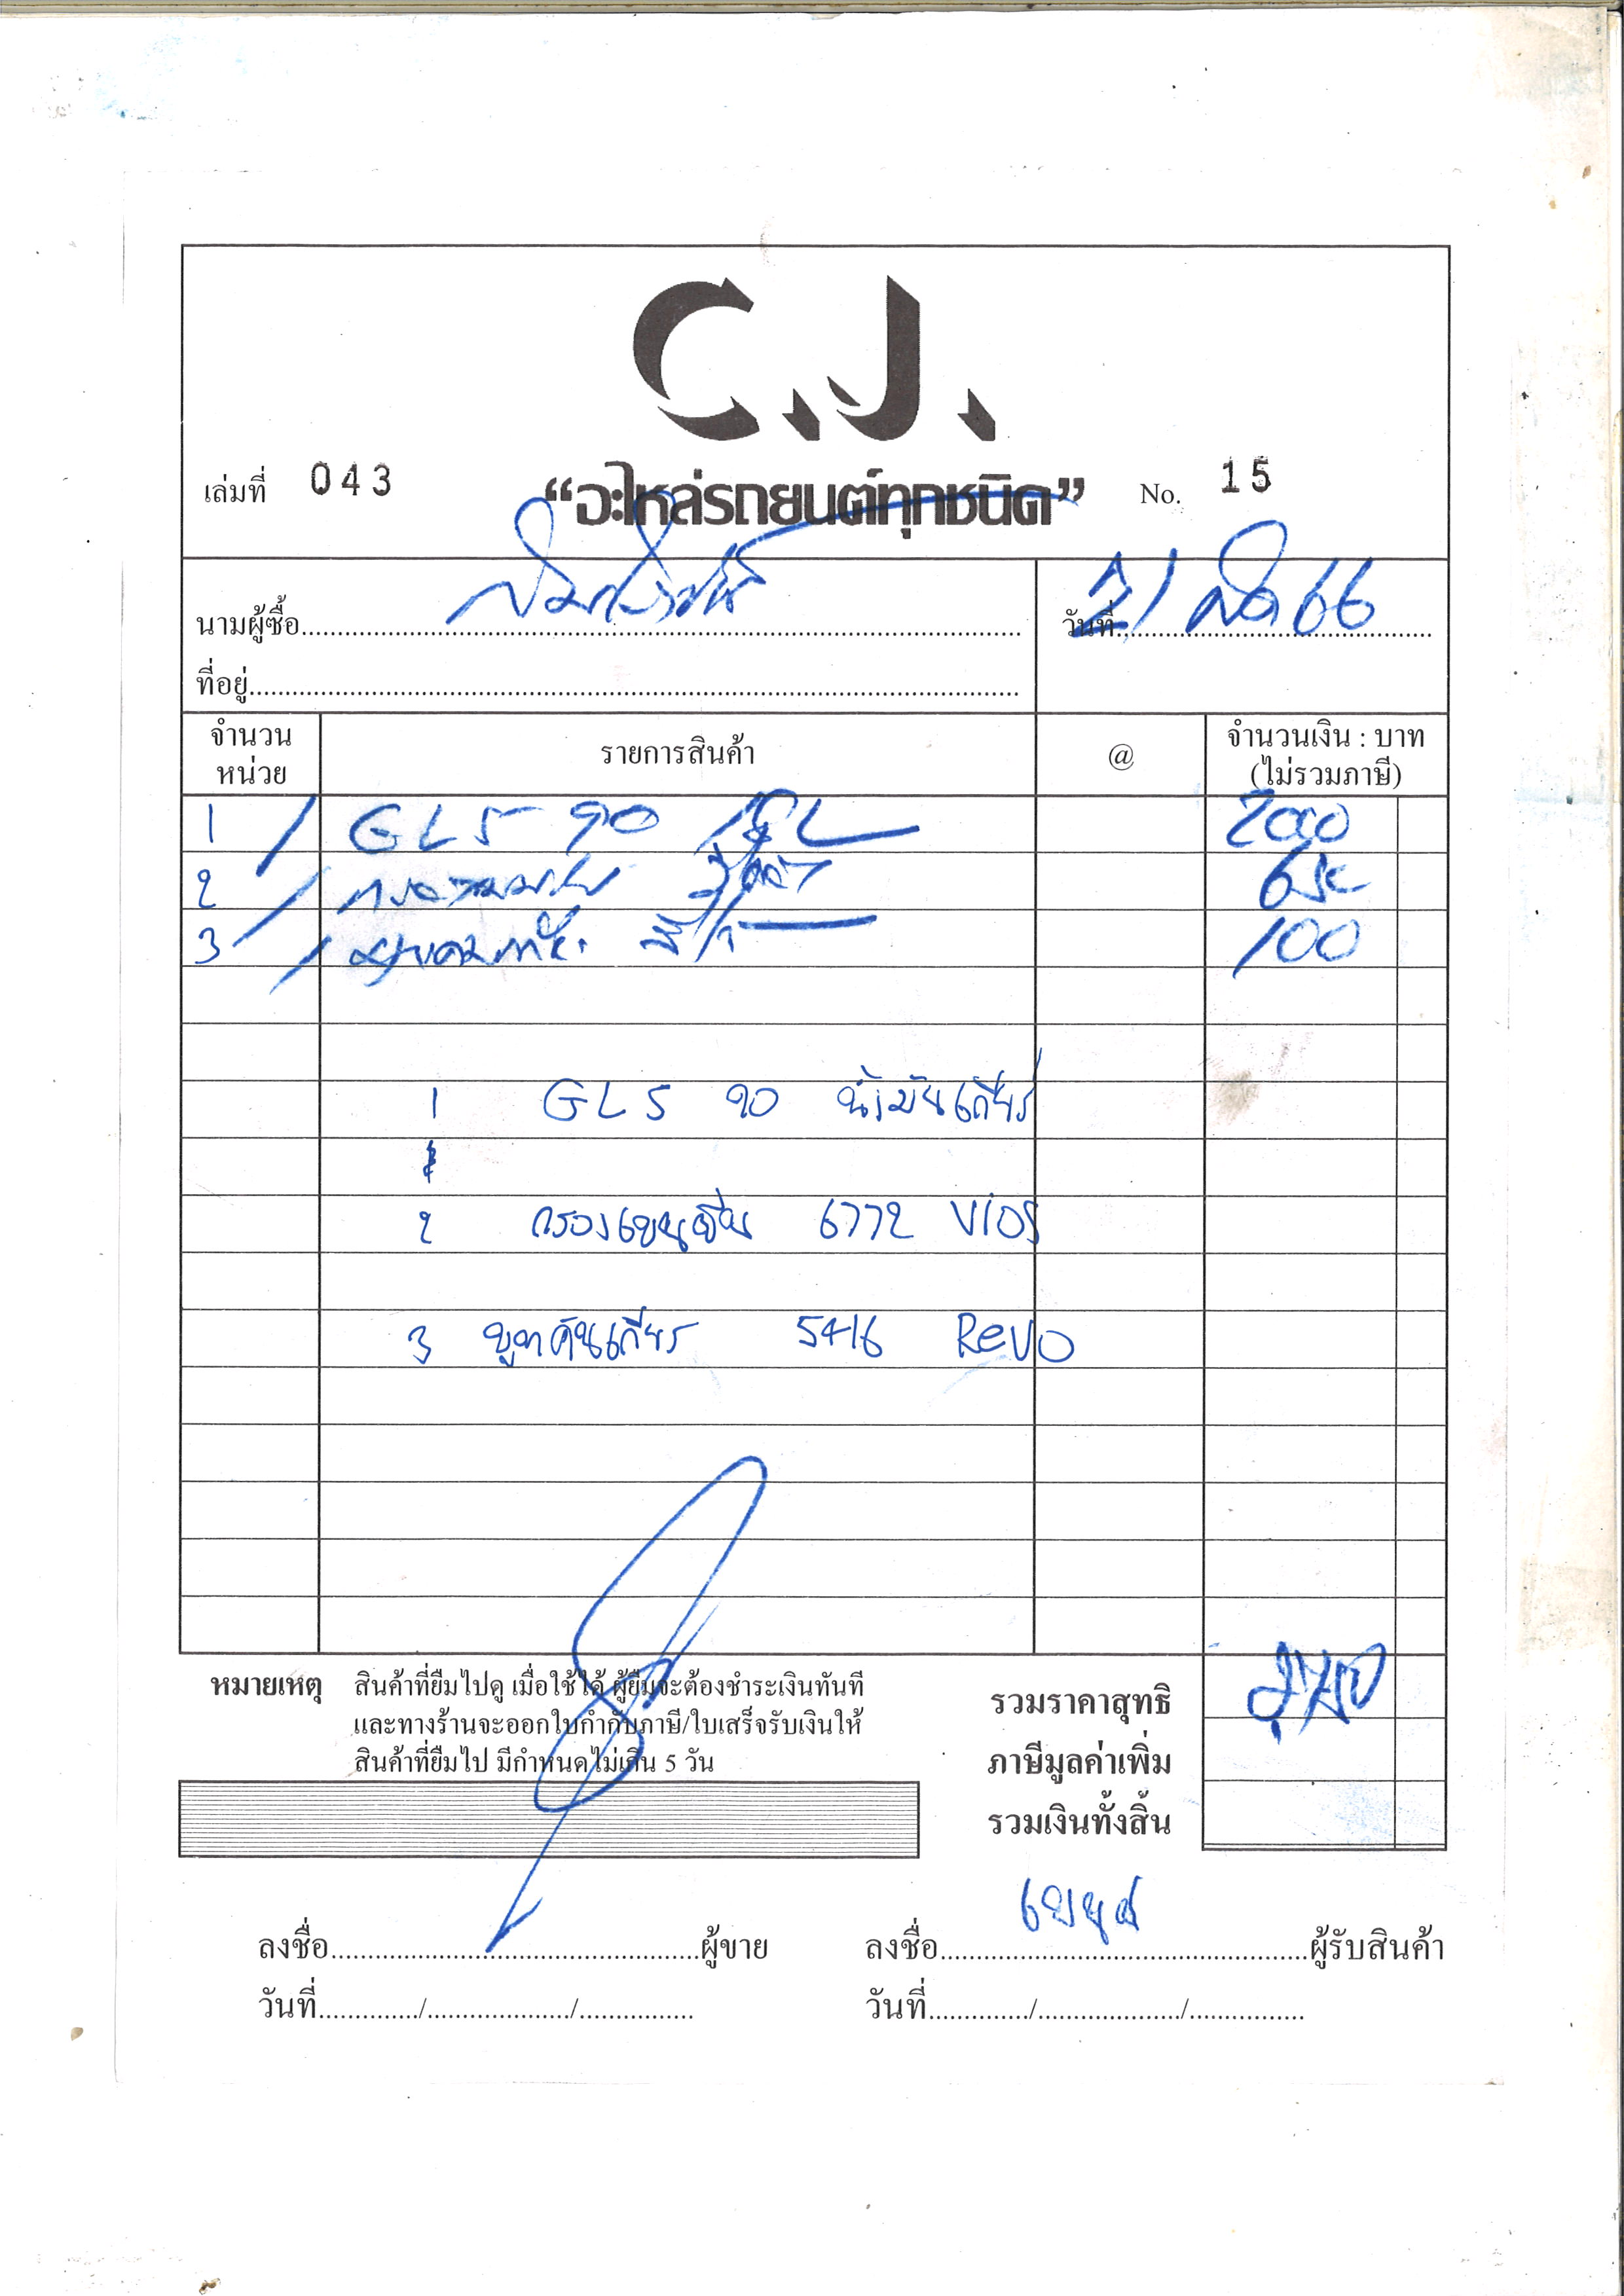 C.J.
เล่มที่ 043 "อะไหล่รถยนต์ทุกชนิด" No. 15
นามผู้ซื้อ วันที่ 21 66
ที่อยู่
จำนวนหน่วย รายการสินค้า @ จำนวนเงิน : บาท (ไม่รวมภาษี)
1 / GL5 90 2000
2 /
3 / 100
1 GL5 90 น้ำมันเกียร์
2 กรองเบนซิน 6772 Vios
3 บูทคันเกียร 5416 Revo
หมายเหตุ สินค้าที่ยืมไปดู เมื่อใช้ได้ ผู้ยืมจะต้องชำระเงินทันที
และทางร้านจะออกใบกำกับภาษี/ใบเสร็จรับเงินให้
สินค้าที่ยืมไป มีกำหนดไม่เกิน 5 วัน
รวมราคาสุทธิ
ภาษีมูลค่าเพิ่ม
รวมเงินทั้งสิ้น
ลงชื่อ ผู้ขาย ลงชื่อ ผู้รับสินค้า
วันที่ / / วันที่ / /